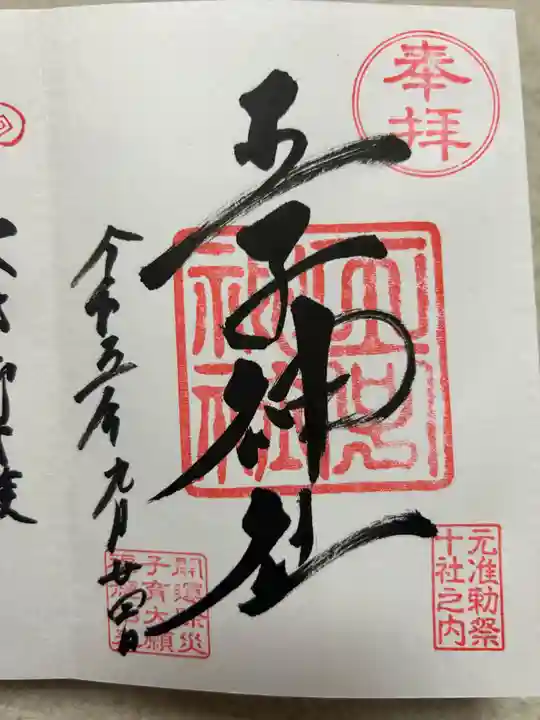 奉拝
元准勅祭
十社之内
王子神社
王子神社
令和五年九月廿四日
開運除災
子育大願